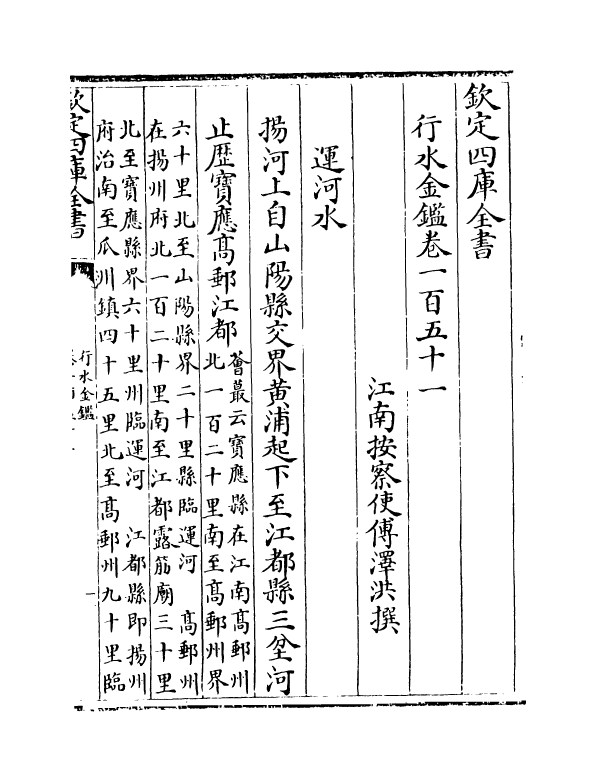 欽定四庫全書
行水金鑑卷一百五十一
江南按察使傅澤洪撰
運河水
揚河上自山陽縣交界黄浦起下至江都縣三坌河
止歴寳應髙郵江都
薈蕞云寳應縣在江南髙郵州
北一百二十里南至髙郵州界
六十里北至山陽縣界二十里縣臨運河　髙郵州
在揚州府北一百二十里南至江都露筋廟三十里
北至寳應縣界六十里州臨運河　江都縣即揚州
府治南至瓜洲鎮四十五里北至髙郵州九十里臨
欽定四庫全書
行水金鑑